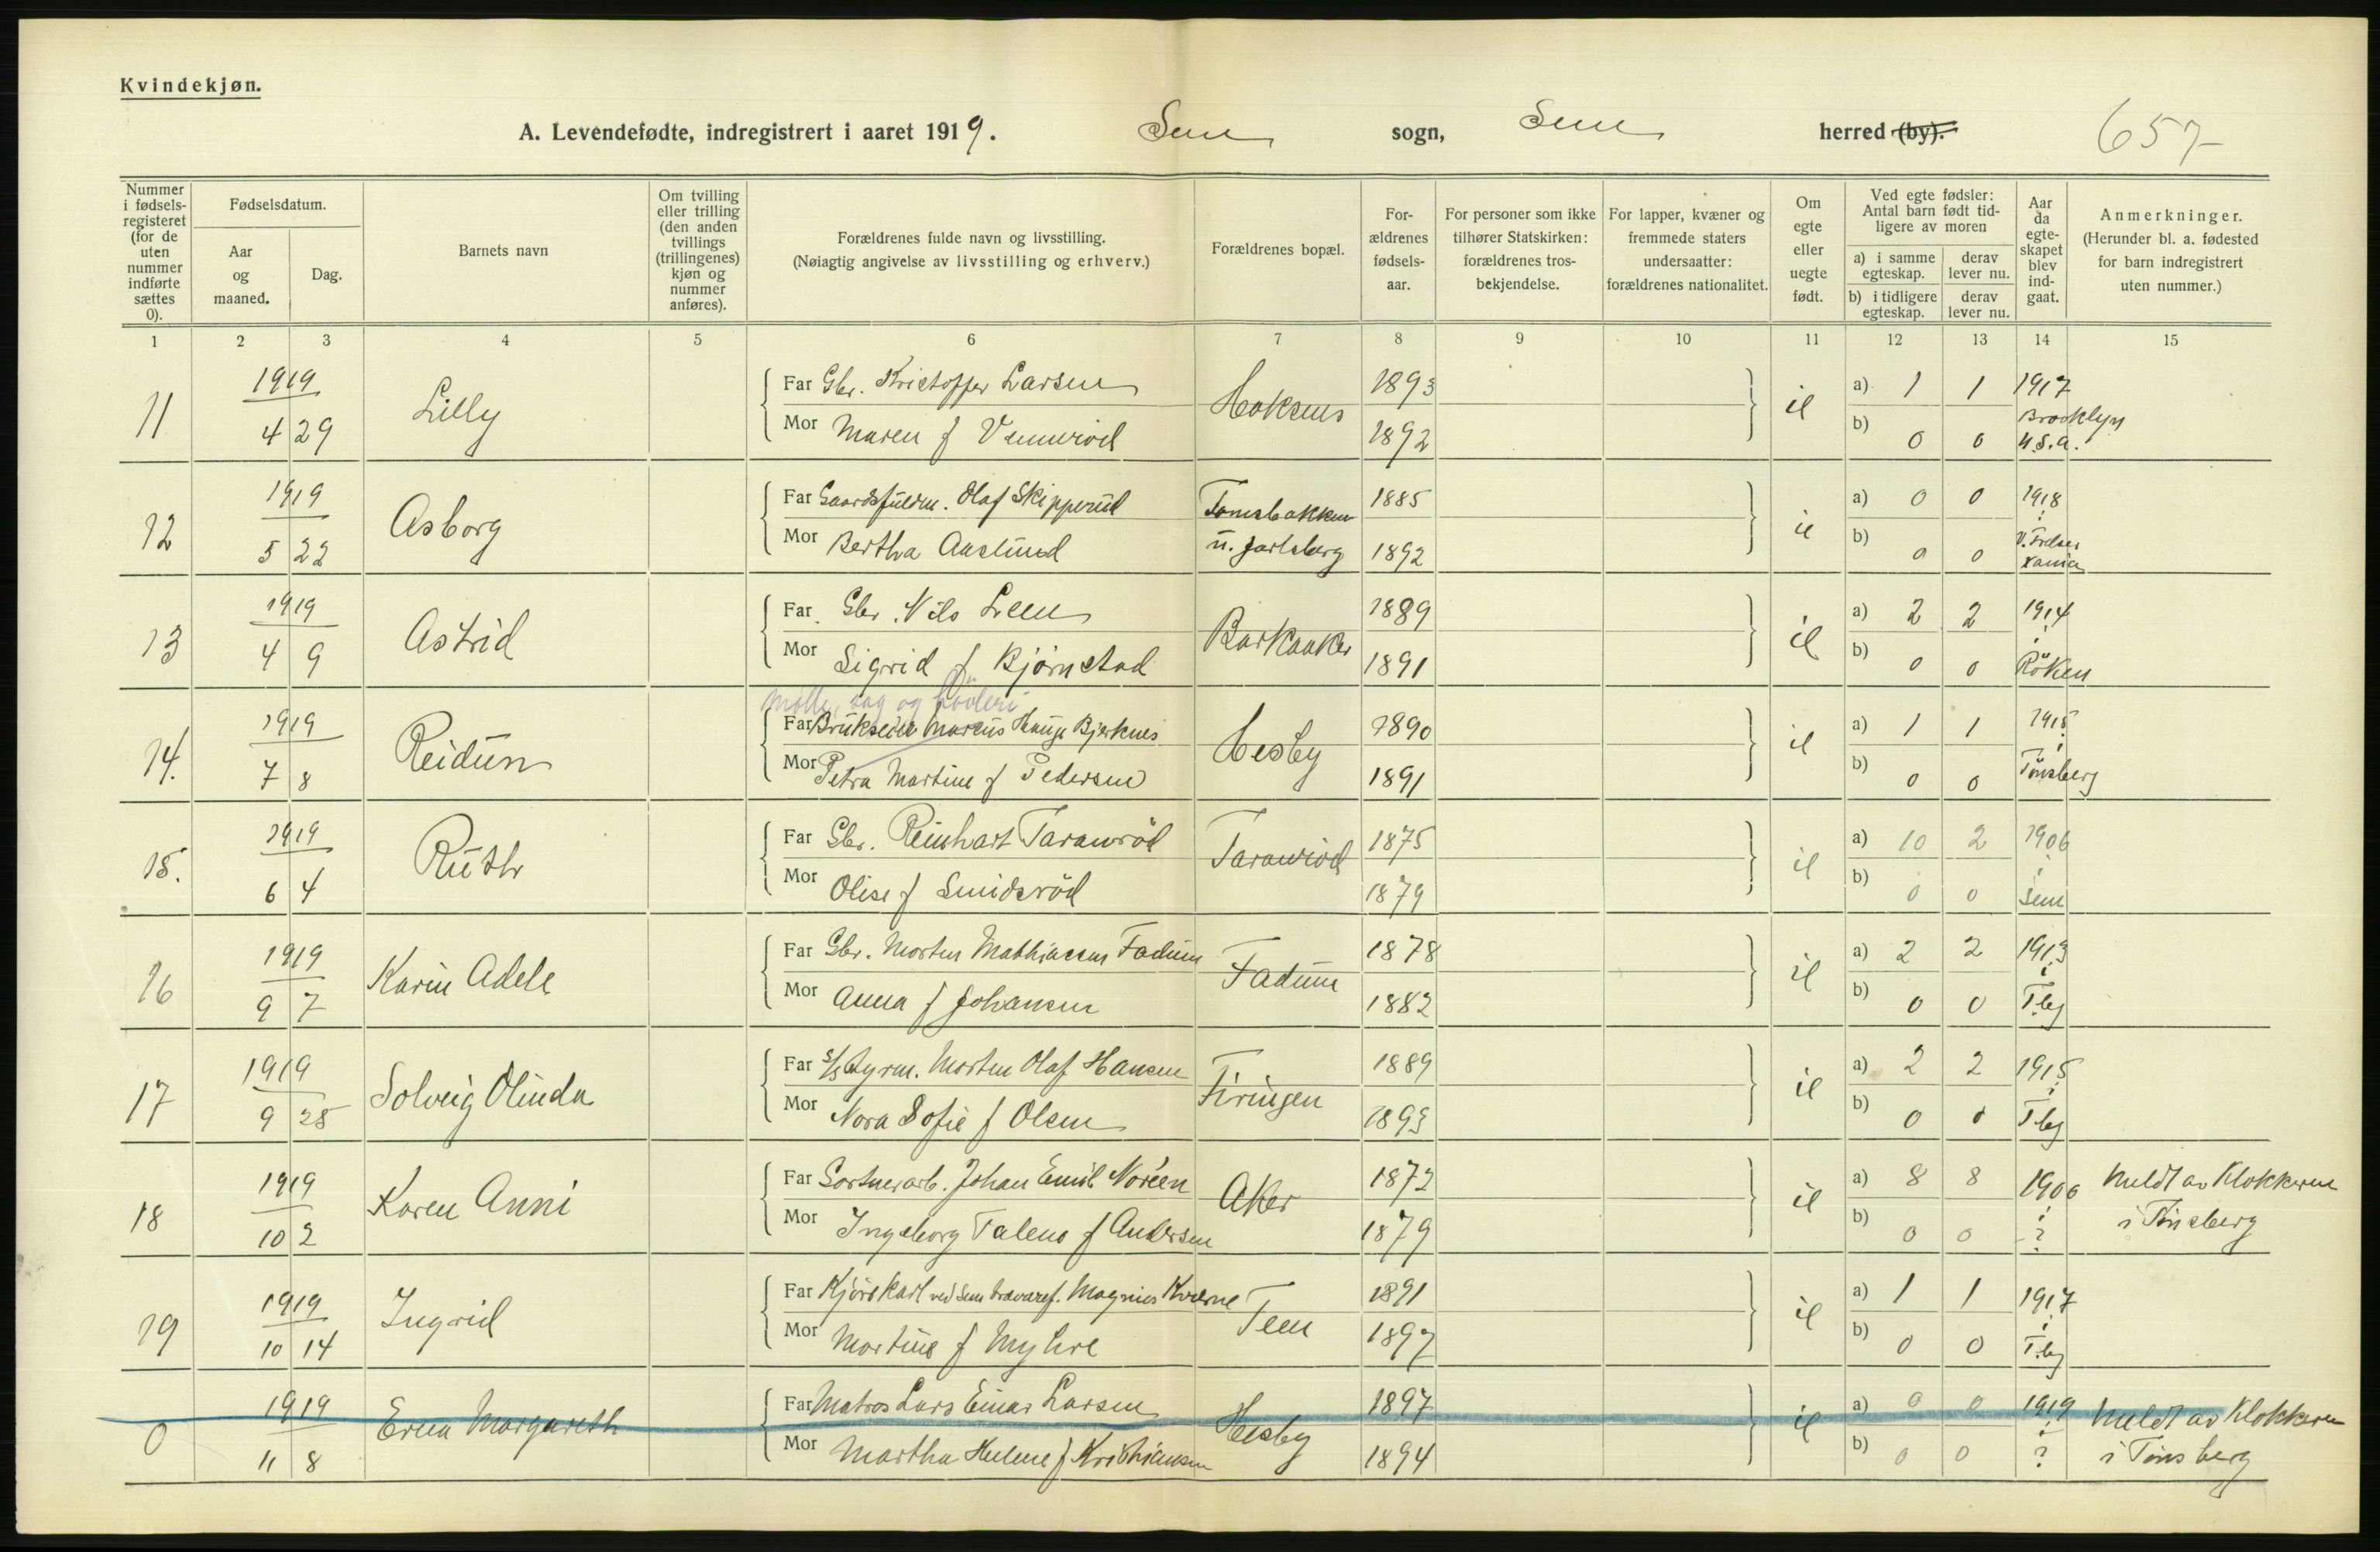 Kvindekjøn.
A. Levendefødte, indregistrert i aaret 1919. Sem sogn, Sem herred (by). 657
Nummer i fødsels-registeret (for de uten nummer indførte sættes 0).
Fødselsdatum.
Aar og maaned.
Dag.
Barnets navn
Om tvilling eller trilling (den anden tvillings (trillingenes) kjøn og nummer anføres).
Forældrenes fulde navn og livsstilling.
(Nøiagtig angivelse av livsstilling og erhverv.)
Forældrenes bopæl.
For-ældrenes fødsels-aar.
For personer som ikke tilhører Statskirken: forældrenes tros-bekjendelse.
For lapper, kvæner og fremmede staters undersaatter: forældrenes nationalitet.
Om egte eller uegte født.
Ved egte fødsler: Antal barn født tid-ligere av moren
a) i samme egteskap. derav lever nu.
b) i tidligere egteskap. derav lever nu.
Aar da egte-skapet blev ind-gaat.
Anmerkninger.
(Herunder bl. a. fødested for barn indregistrert uten nummer.)
1 2 3 4 5 6 7 8 9 10 11 12 13 14 15
1919 Far Gbr. Kristoffer Larsen 1893 a) 1 1 1917
11 Lilly Haksnes il Brooklyn
4 29 Mor Maren f 1892 b) 0 0 U.S.A.
1919 Far Gaardsfuldm. Olaf Skipperud Tomsbakken 1885 a) 0 0 1918
12 Asborg il
5 22 Mor Bertha Aaslund u. Jarlsberg 1892 b) 0 0 V. Frelser Xania
1919 Far Gbr. Nils Leen 1889 a) 2 2 1914
13 Astrid Barkaaker il i
4 9 Mor Sigrid f Bjørnstad 1891 b) 0 0 Röken
Mølle, sag og høvleri
1919 Far Brukseier Marius Hauge Bjerknes 1890 a) 1 1 1915
14. Reidun Hesby il i
7 8 Mor Petra Martine f Pedersen 1891 b) 0 0 Tönsberg
1919 Far Gbr. Reinhart Taranröd 1875 a) 10 2 1906
15. Ruth Taranröd il i
6 4 Mor Olise f Smidsröd 1879 b) 0 0 Sem
1919 Far Gbr. Morten Mathiassen Fadum 1878 a) 2 2 1913
16 Karin Adele Fadum il i
9 7 Mor Anna f Johansen 1882 b) 0 0 Tbg
1919 Far S/S Styrm. Morten Olaf Hansen 1889 a) 2 2 1915
17 Solveig Olinda Firingen il i
9 25 Mor Nora Sofie f Olsen 1893 b) 0 0 Tbg
1919 Far Gartnerarb. Johan Emil Noréen 1872 a) 8 8 1906 Meldt av Klokkeren
18 Karen Anni Aker il i i Tönsberg
10 2 Mor Ingeborg f Andersen 1879 b) 0 0 ?
1919 Far Kjörekarl ved Sem Magnus Kverne 1891 a) 1 1 1917
19 Ingrid Tem il i
10 14 Mor Martine f Myhre 1897 b) 0 0 Tbg
1919 Far Matros Lars Einar Larsen 1897 a) 0 0 1919 Meldt av Klokkeren
0 Erna Margareth Hesby il i i Tönsberg
11 8 Mor Martha Helene f Kristiansen 1894 b) 0 0 ?